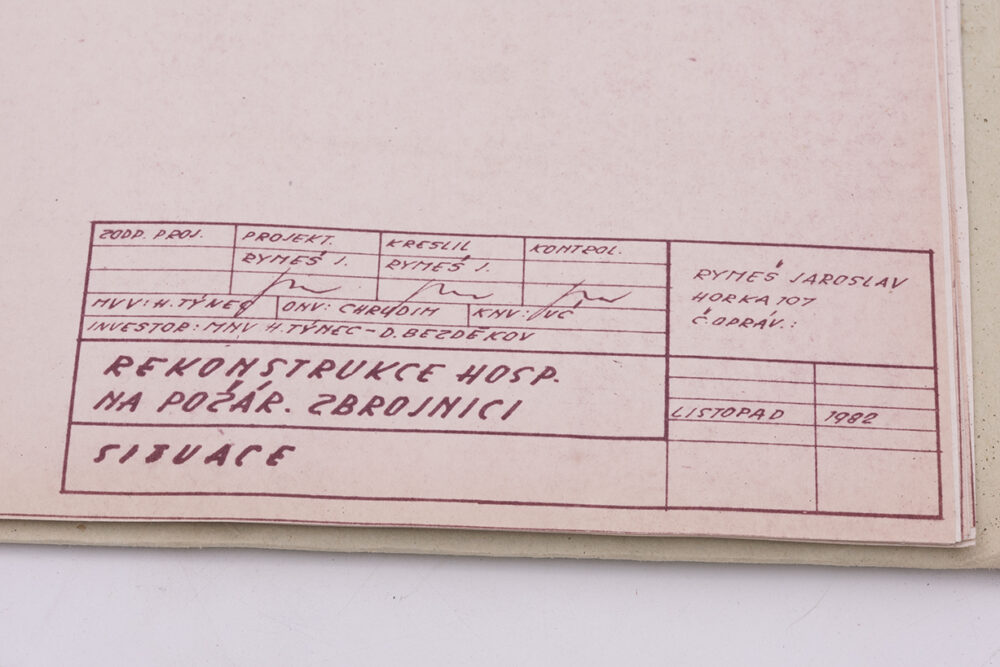 ZODP. PROJ. PROJEKT. KRESLIL KONTROL.
RYMEŠ J. RYMEŠ J.
MVV: H. TÝNEC ONV: CHRUDIM KNV: VČ
INVESTOR: MNV H. TÝNEC - D. BEZDĚKOV
REKONSTRUKCE HOSP.
NA POŽÁR. ZBROJNICI
SITUACE
RYMEŠ JAROSLAV
HORKA 107
Č. OPRÁV.:
LISTOPAD 1982